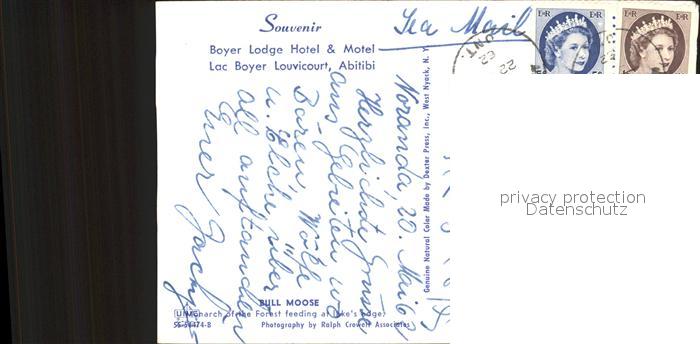 Souvenir
Boyer Lodge Hotel & Motel
Lac Boyer Louvicourt, Abitibi
Sea Mail
E R
E R
E R
E R
ONT.
Noranda, 20. Mai 62
Herzlichste Grüsse
aus Gebieten wo
Bären, Wölfe
u. Elche über
all auftauchen
Euer Jacky
Genuine Natural Color Made by Dexter Press, Inc., West Nyack, N. Y.
BULL MOOSE
Monarch of the Forest feeding at lake's edge.
Photography by Ralph Crowell Associates
privacy protection
Datenschutz